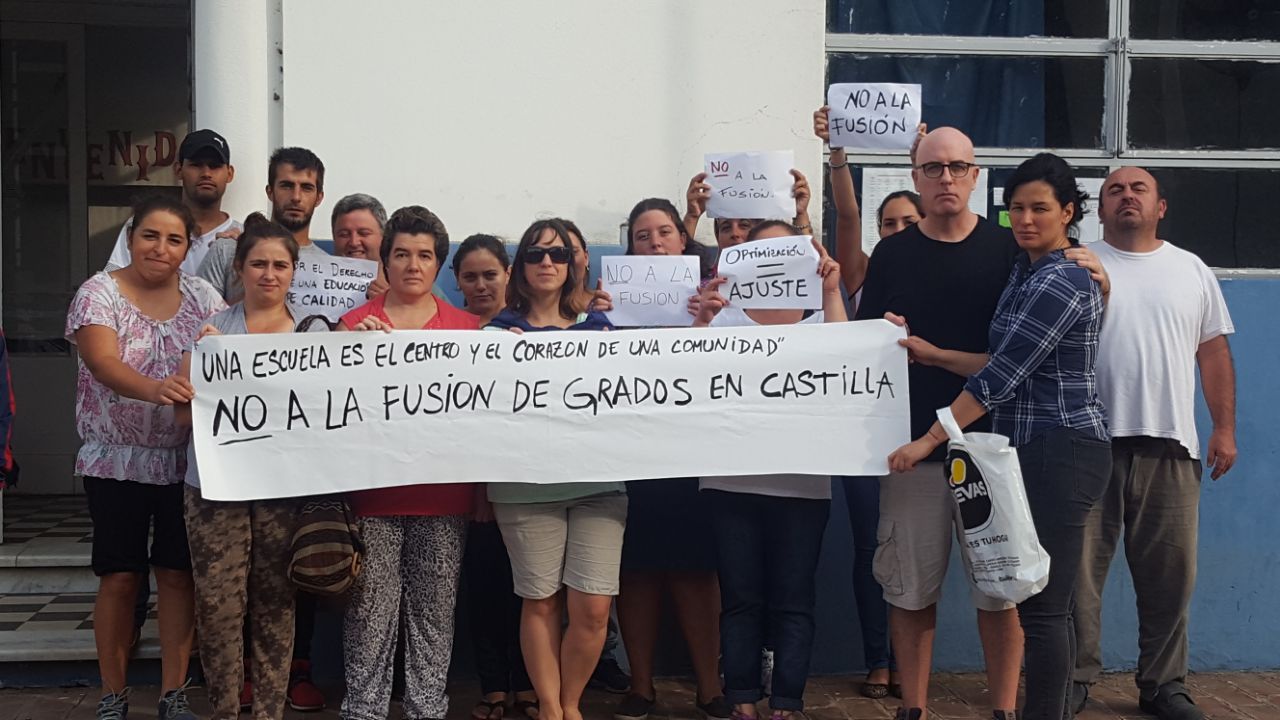 NO A LA
FUSIÓN
NO
A LA
FUSION.
OPTIMIZACIÓN
=
AJUSTE
NO A LA
FUSION
OR EL DERECHO
E UNA EDUCACIÓ
E CALIDAD
UNA ESCUELA ES EL CENTRO Y EL CORAZON DE UNA COMUNIDAD"
NO A LA FUSION DE GRADOS EN CASTILLA
ENID
EVAS
TU HOGA